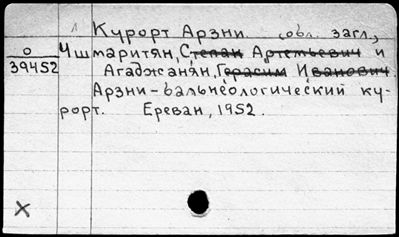 Курорт Арзни (обл. загл.,
О
39452
Чшмаритян, Степан Артемьевич и
Агаджанян, Герасим Иванович.
Арзни-бальнеологический ку-
рорт. Ереван, 1952.
X